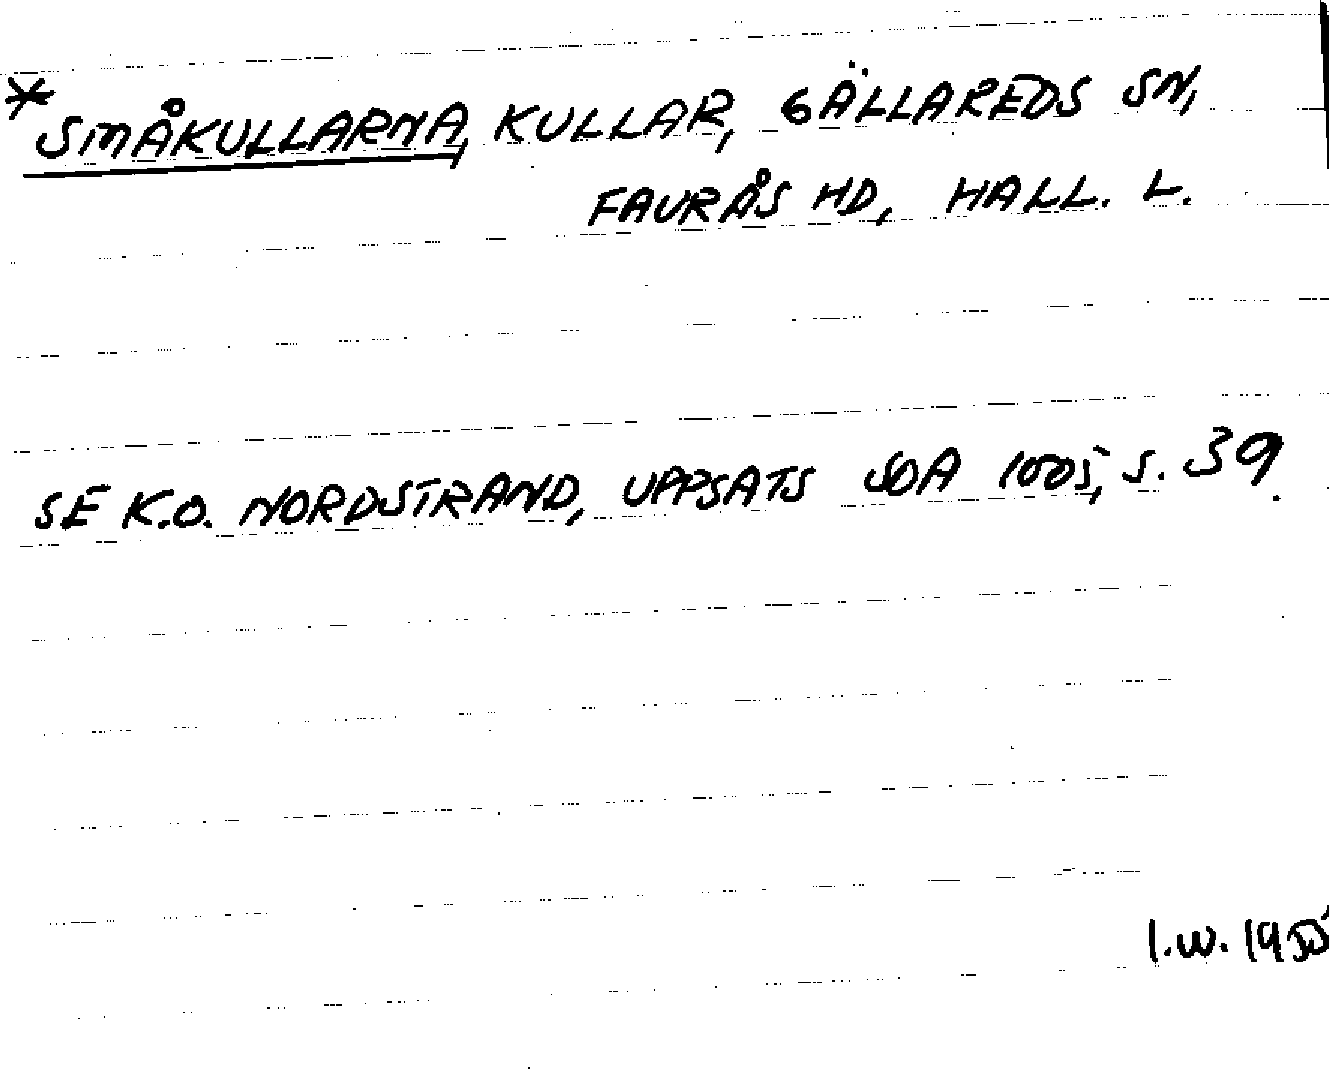 *SMÅKULLARNA, KULLAR, GÄLLAREDS SN,
FAURÅS HD, HALL. L.
SE K.O. NORDSTRAND, UPPSATS SOA 1005, S. 39.
I.W. 1950